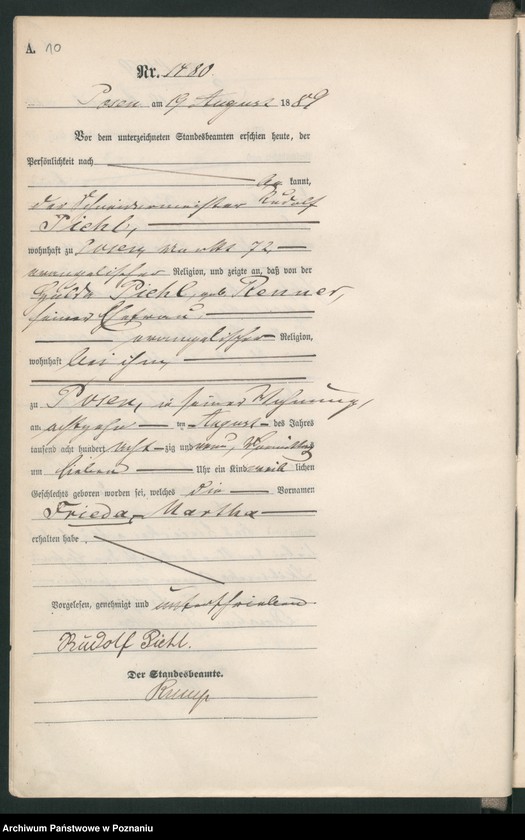 A. 10
Nr. 1780
Posen am 19 August 1889
Vor dem unterzeichneten Standesbeamten erschien heute, der
Persönlichkeit nach
kannt,
der Schneidermeister Rudolf
Piehl,
wohnhaft zu Posen, Markt 72,
evangelischer Religion, und zeigte an, daß von der
Hulda Piehl, geb. Renner,
seiner Ehefrau
evangelischer Religion,
wohnhaft bei ihm,
zu Posen, in seiner Wohnung,
am achtzehn ten August des Jahres
tausend acht hundert acht zig und neun, Vormittags
um sieben Uhr ein Kind weib lichen
Geschlechts geboren worden sei, welches die Vornamen
Frieda, Martha
erhalten habe
Vorgelesen, genehmigt und unterschrieben
Rudolf Piehl.
Der Standesbeamte.
Archiwum Państwowe w Poznaniu